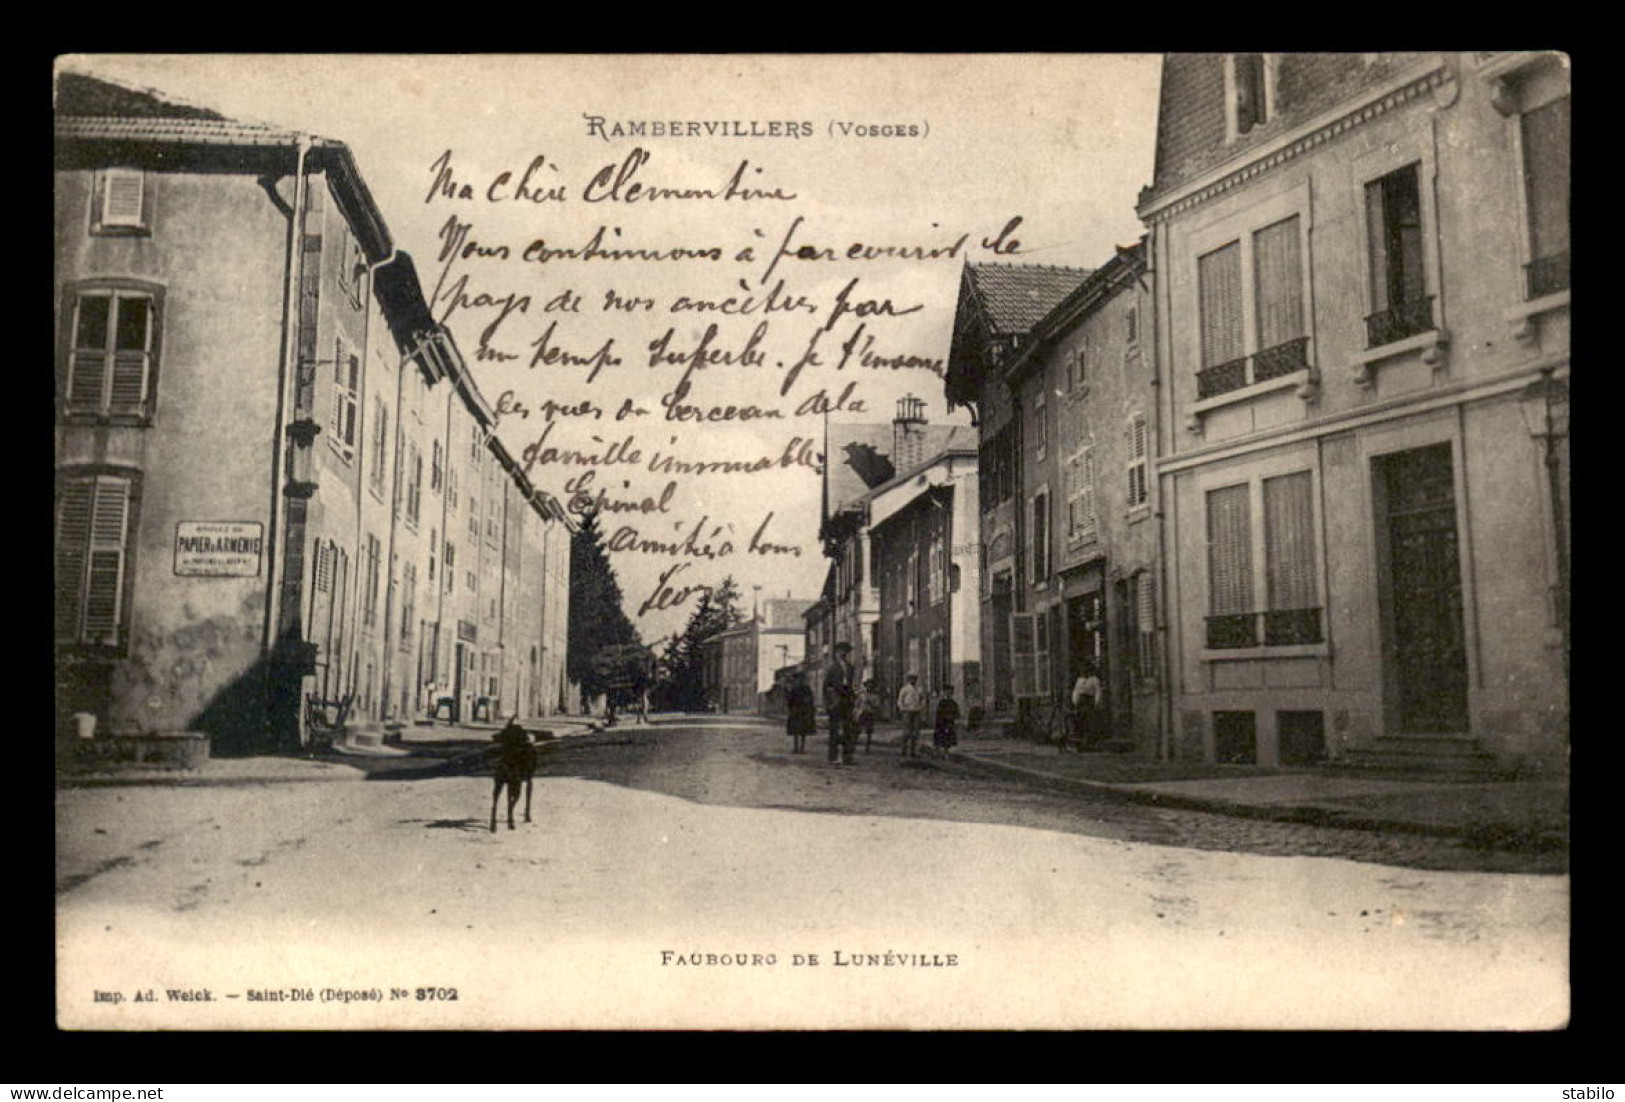 RAMBERVILLERS (VOSGES)
Ma chère Clémentine
Nous continuons à parcourir le
pays de nos ancêtres par
un temps superbe. Je t'
les vues du berceau de la
famille immuable
Epinal
Amitiés à tous
Léon
PAPIER D'ARMÉNIE
FAUBOURG DE LUNÉVILLE
Imp. Ad. Weick. — Saint-Dié (Déposé) No 3702
delcampe.net
stabilo